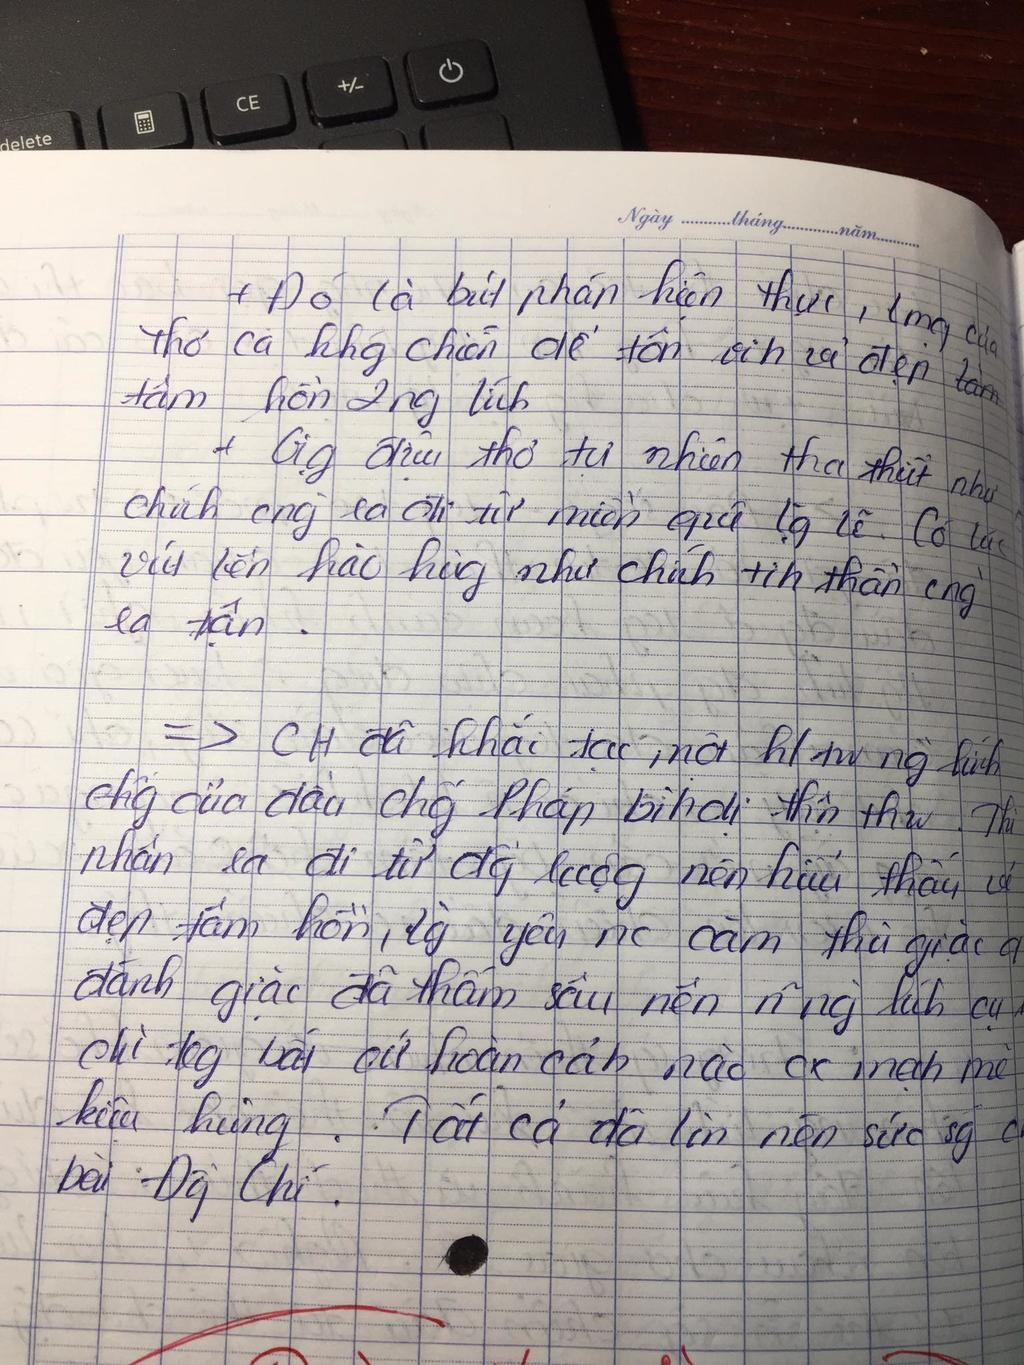 delete
CE
+/-
Ngày ..........tháng............năm.........
+ Đó là bút pháp hiện thực, lmạg của
thơ ca khg chiến để tôn vih vẻ đẹp
tâm hồn 2ng lính
+ Gịg điệu thơ tự nhiên tha thiết như
chính cng ra đi từ miền quê lg lẽ. Có lúc
vút lên hào hùg như chính tih thần cng
ra trận.
=> CH đã khắc tạc một ht ng lính
chốg của đầu chốg Pháp bìh dị thân thw. Thi
nhân ra đi từ đg ruộg nên hiểu thấu vẻ
đẹp tâm hồn, lg yêu nc căm thù giặc
đánh giặc đã thấm sâu nên ng lính cụ
chỉ trg bất cứ hoàn cảh nào ck mạnh mẽ
kiêu hùng. Tất cả đã làm nên sức sg
bài Đg Chí.